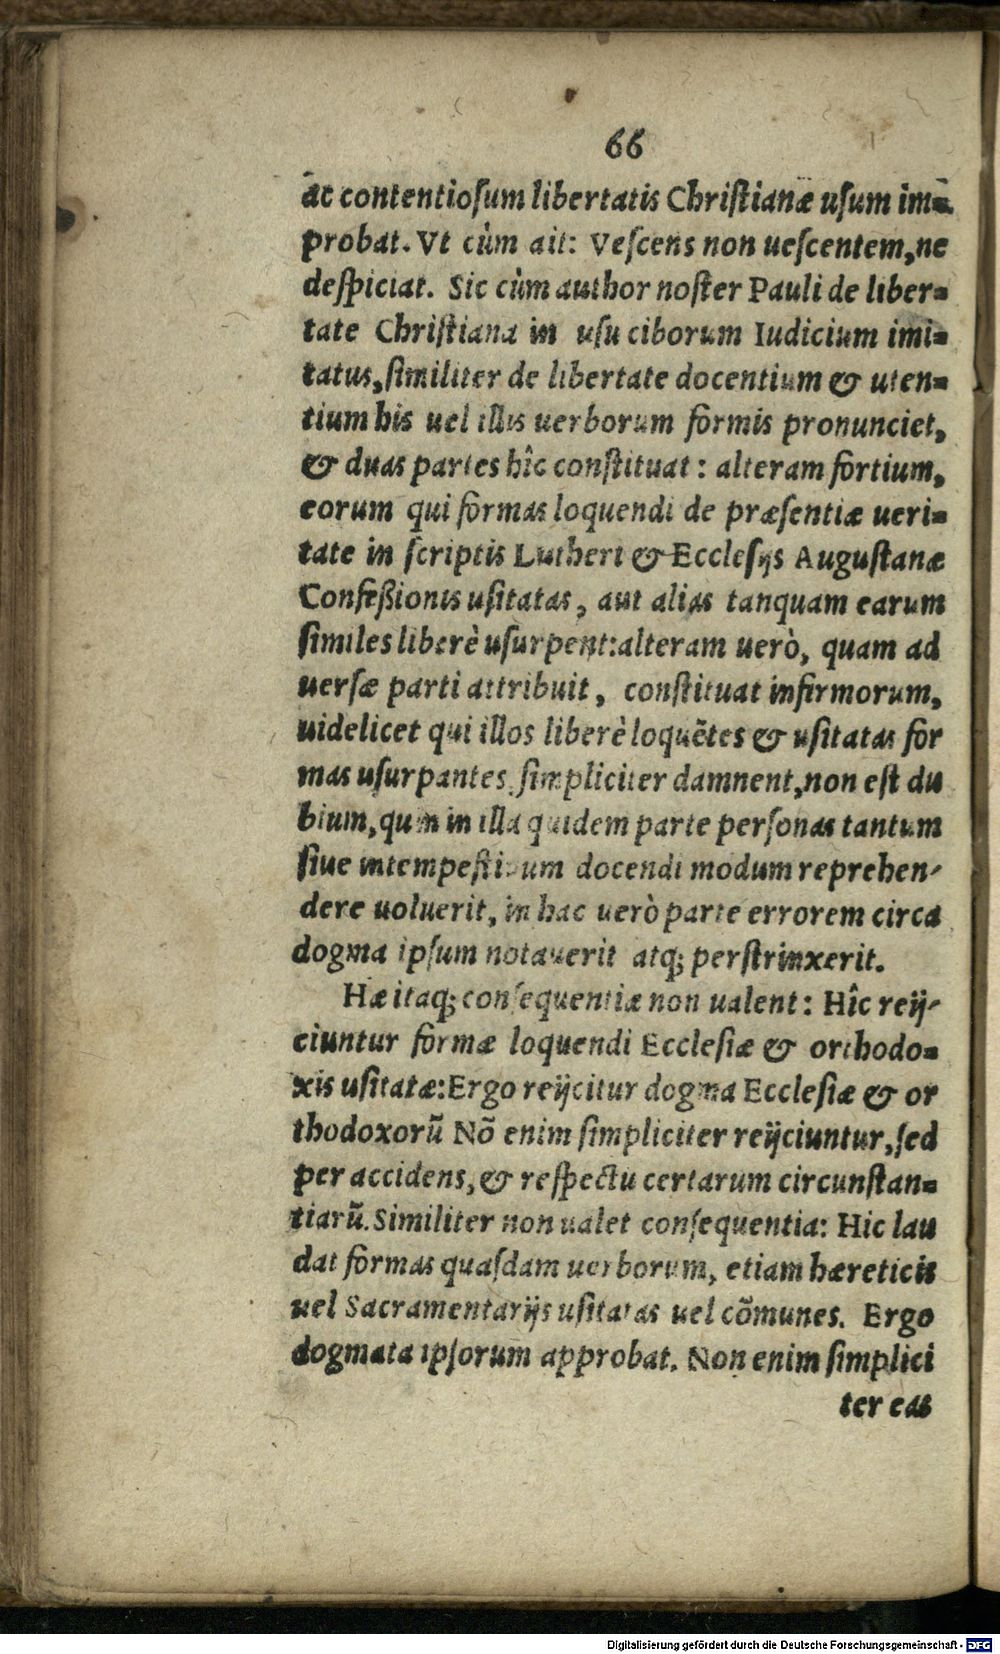 66
ac contentioſum libertatis Chriſtianæ uſum im-
probat. Vt cùm ait: Veſcens non ueſcentem, ne
deſpiciat. Sic cùm author noſter Pauli de liber-
tate Chriſtiana in uſu ciborum Iudicium imi-
tatus, ſimiliter de libertate docentium & uten-
tium his uel illis uerborum formis pronunciet,
& duas partes hîc conſtituat: alteram fortium,
eorum qui formas loquendi de præſentiæ ueri-
tate in ſcriptis Lutheri & Eccleſijs Auguſtanæ
Confeßionis uſitatas, aut alias tanquam earum
ſimiles liberè uſurpent: alteram uerò, quam ad
uerſæ parti attribuit, conſtituat infirmorum,
uidelicet qui illos liberè loquẽtes & uſitatas for
mas uſurpantes ſimpliciter damnent, non eſt du
bium, quin in illa quidem parte perſonas tantum
ſiue intempeſtiuum docendi modum reprehen-
dere uoluerit, in hac uerò parte errorem circa
dogma ipſum notauerit atq; perſtrinxerit.
Hæ itaq; conſequentiæ non ualent: Hîc reij-
ciuntur formæ loquendi Eccleſiæ & orthodo-
xis uſitatæ: Ergo reijcitur dogma Eccleſiæ & or
thodoxorũ Nõ enim ſimpliciter reijciuntur, ſed
per accidens, & reſpectu certarum circunſtan-
tiarũ. Similiter non ualet conſequentia: Hic lau
dat formas quaſdam uerborum, etiam hæreticis
uel Sacramentarijs uſitatas uel cõmunes. Ergo
dogmata ipſorum approbat. Non enim ſimplici
ter eas
Digitalisierung gefördert durch die Deutsche Forschungsgemeinschaft - DFG